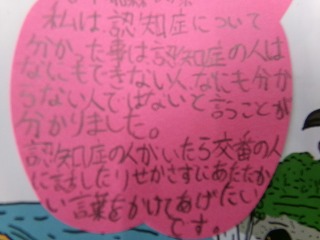 私は、認知症について
分かった事は認知症の人は
なにもできない人、なにも分か
らない人ではないと言うことが
分かりました。
認知症の人がいたら交番の人
におましたりせかさずにあたたか
い言葉をかけてあげたい
です。